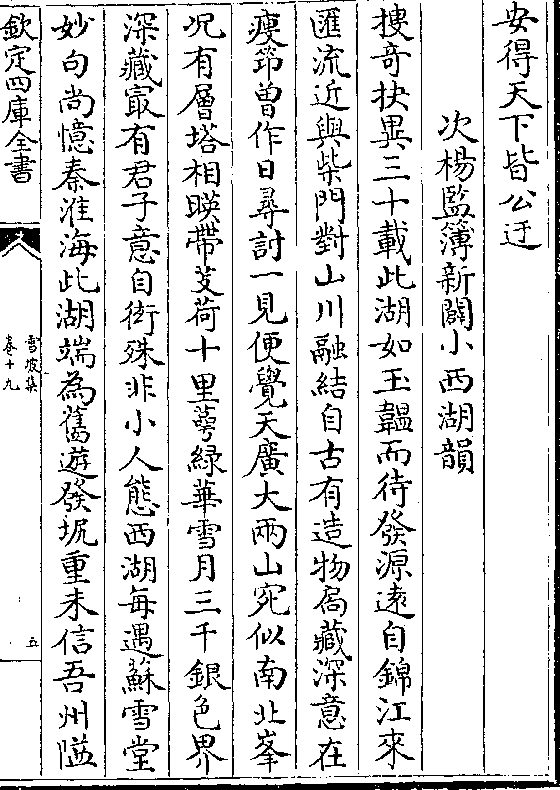 安得天下皆公迂
次楊監簿新闢小西湖韻
搜奇抉異三十載此湖如玉韞而待發源遠自錦江來
匯流近與柴門對山川融結自古有造物扃藏深意在
瘦筇曽作日尋討一見便覺天廣大兩山宛似南北峯
况有層塔相暎帶芰荷十里萼緑華雪月三千銀色界
深藏㝡有君子意自衒殊非小人態西湖每遇蘇雪堂
妙句尚憶秦淮海此湖端為舊遊發坭重未信吾州隘
欽定四庫全書
雪坡集
卷十九
五